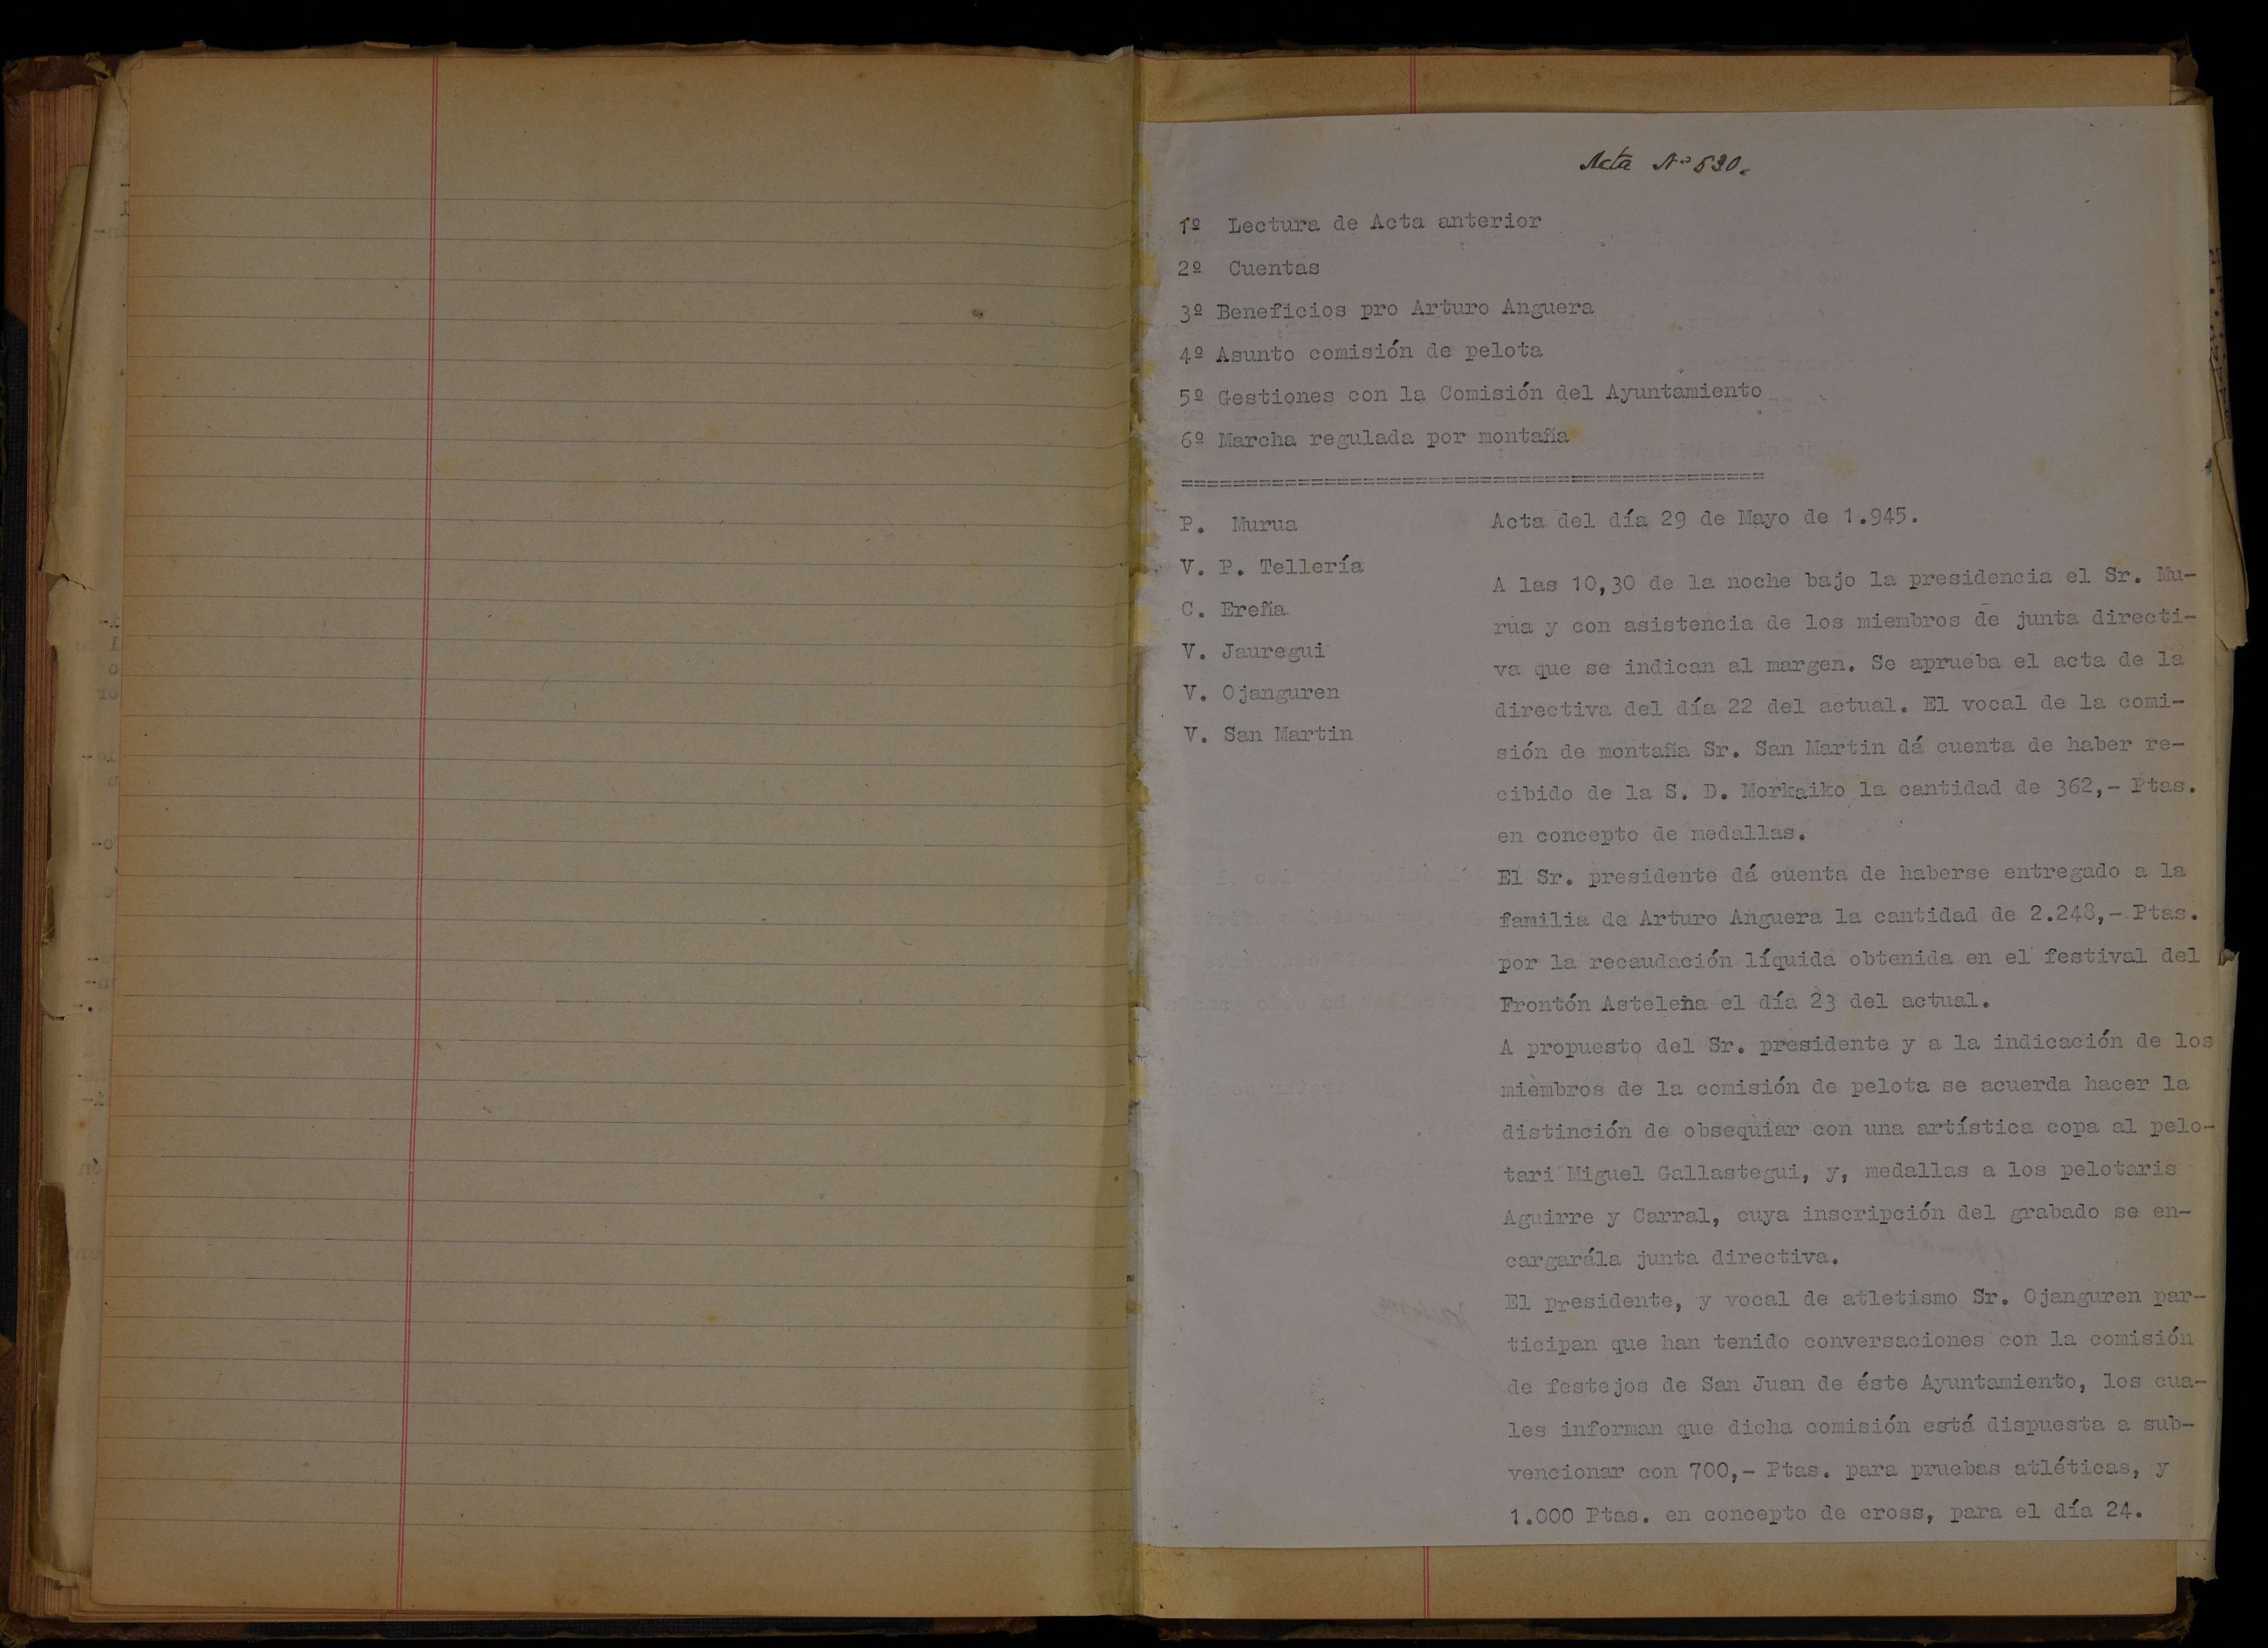 Acta Nº 530.
1º Lectura de Acta anterior
2º Cuentas
3º Beneficios pro Arturo Anguera
4º Asunto comisión de pelota
5º Gestiones con la Comisión del Ayuntamiento
6º Marcha regulada por montaña
=============================================
P. Murua
V. P. Tellería
C. Ereña
V. Jauregui
V. Ojanguren
V. San Martin
Acta del día 29 de Mayo de 1.945.
A las 10,30 de la noche bajo la presidencia el Sr. Mu-
rua y con asistencia de los miembros de junta directi-
va que se indican al margen. Se aprueba el acta de la
directiva del día 22 del actual. El vocal de la comi-
sión de montaña Sr. San Martin dá cuenta de haber re-
cibido de la S. D. Morkaiko la cantidad de 362,- Ptas.
en concepto de medallas.
El Sr. presidente dá cuenta de haberse entregado a la
familia de Arturo Anguera la cantidad de 2.248,- Ptas.
por la recaudación líquida obtenida en el festival del
Frontón Astelena el día 23 del actual.
A propuesto del Sr. presidente y a la indicación de los
miembros de la comisión de pelota se acuerda hacer la
distinción de obsequiar con una artística copa al pelo-
tari Miguel Gallastegui, y, medallas a los pelotaris
Aguirre y Carral, cuya inscripción del grabado se en-
cargarála junta directiva.
El presidente, y vocal de atletismo Sr. Ojanguren par-
ticipan que han tenido conversaciones con la comisión
de festejos de San Juan de éste Ayuntamiento, los cua-
les informan que dicha comisión está dispuesta a sub-
vencionar con 700,- Ptas. para pruebas atléticas, y
1.000 Ptas. en concepto de cross, para el día 24.